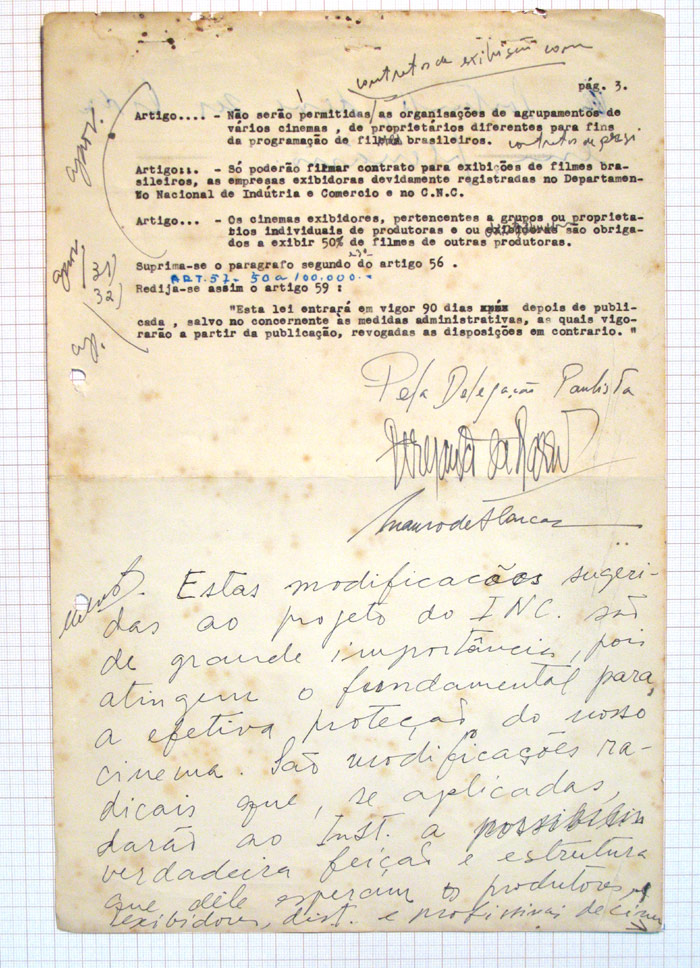 contratos de exibição com
pág. 3.
Artigo.... - Não serão permitidas as organisações de agrupamentos de
vários cinemas , de proprietários diferentes para fins
da programação de filmes brasileiros.
contratos de
Artigo::. - Só poderão firmar contrato para exibições de filmes bra-
sileiros, as empresas exibidoras devidamente registradas no Departamen-
to Nacional de Indútria e Comercio e no C.N.C.
Artigo... - Os cinemas exibidores, pertencentes a grupos ou proprieta-
bios individuais de produtoras e ou exibidoras são obriga-
dos a exibir 50% de filmes de outras produtoras.
Suprima-se o paragrafo segundo do artigo 56 .
ART. 57- 50 a 100.000--
Redija-se assim o artigo 59 :
31)
32)
"Esta lei entrará em vigor 90 dias depois de publi-
cada , salvo no concernente às medidas administrativas, as quais vigo-
rarão a partir da publicação, revogadas as disposições em contrario. "
Pela Delegação Paulista
Mauro de Alencar
Estas modificações sugeri-
das ao projeto do INC. são
de grande importância, pois
atingem o fundamental para
a efetiva proteção do nosso
cinema. São modificações ra-
dicais que, se aplicadas,
darão ao Inst. a
verdadeira feição e estrutura
que dele esperam os produtores,
exibidores, dist. e profissinais de cinema